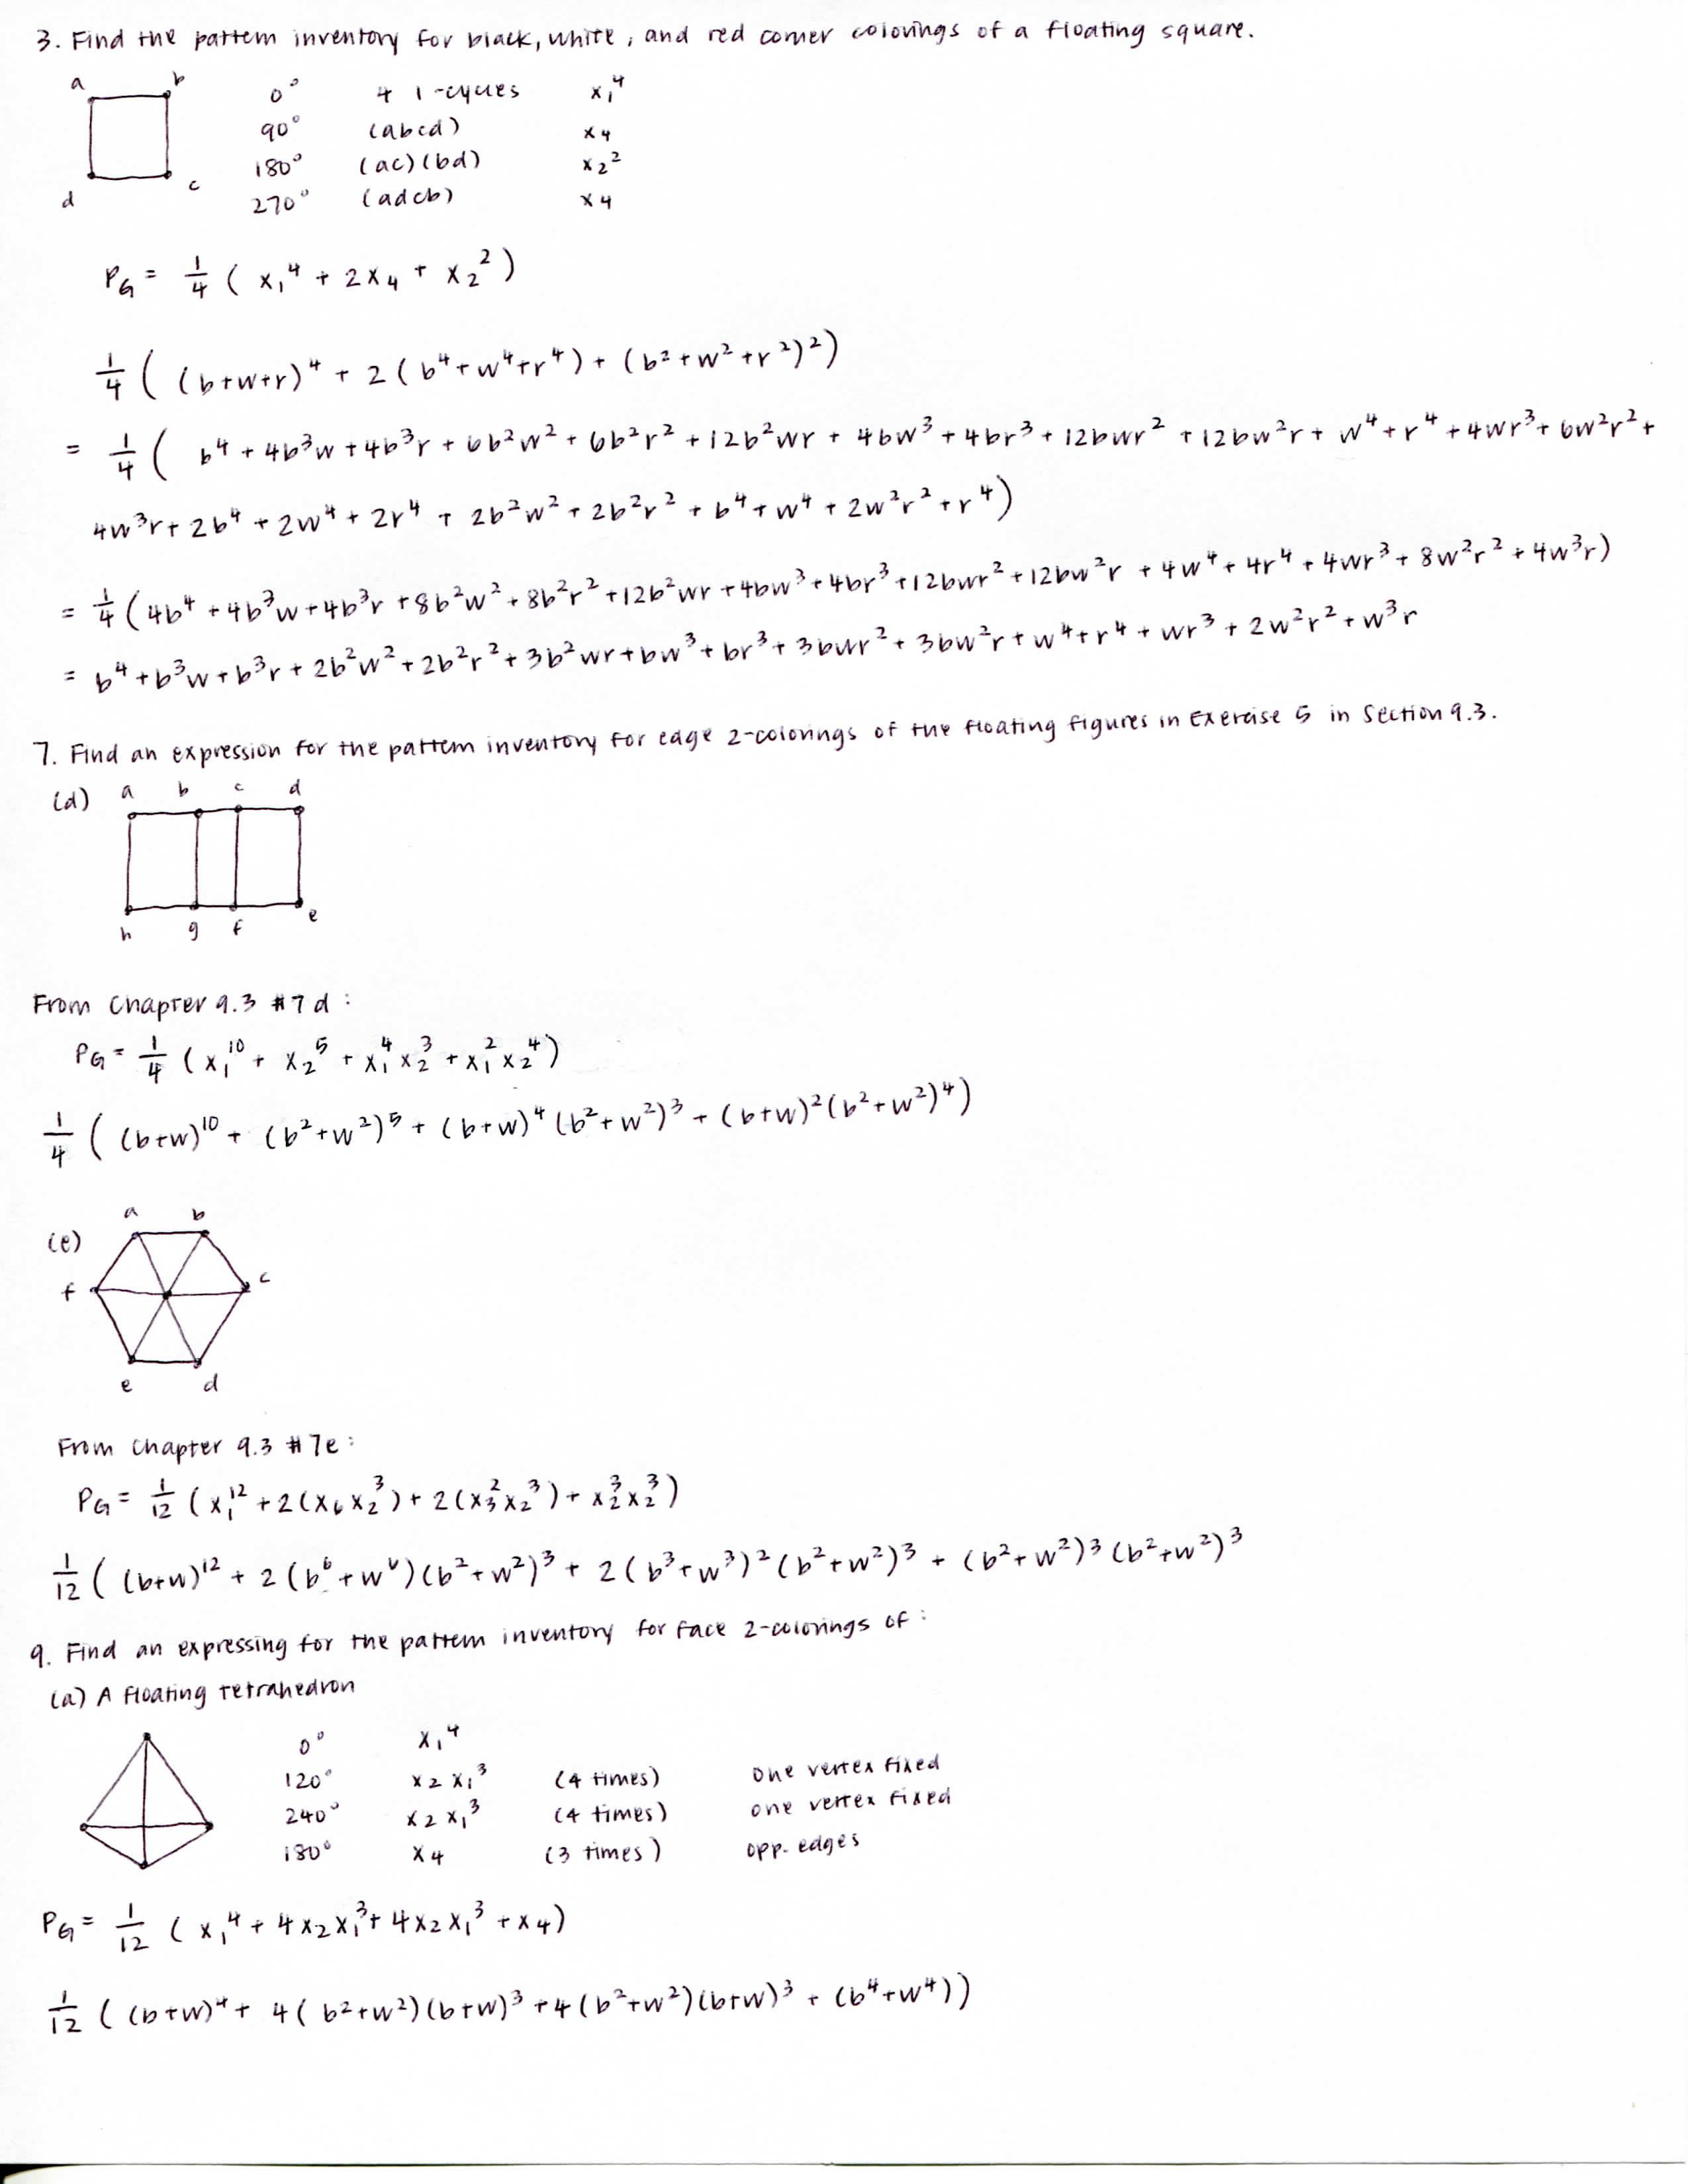 3. Find the pattern inventory for black, white, and red corner colorings of a floating square.
a b
0° 4 1-cycles x₁⁴
90° (abcd) x₄
180° (ac)(bd) x₂²
d c
270° (adcb) x₄
P_G = 1/4 ( x₁⁴ + 2x₄ + x₂² )
1/4 ( (b+w+r)⁴ + 2(b⁴+w⁴+r⁴) + (b²+w²+r²)²)
= 1/4 ( b⁴ + 4b³w + 4b³r + 6b²w² + 6b²r² + 12b²wr + 4bw³ + 4br³ + 12bwr² + 12bw²r + w⁴ + r⁴ + 4wr³ + 6w²r² +
4w³r + 2b⁴ + 2w⁴ + 2r⁴ + 2b²w² + 2b²r² + b⁴ + w⁴ + 2w²r² + r⁴)
= 1/4 (4b⁴ + 4b³w + 4b³r + 8b²w² + 8b²r² + 12b²wr + 4bw³ + 4br³ + 12bwr² + 12bw²r + 4w⁴ + 4r⁴ + 4wr³ + 8w²r² + 4w³r)
= b⁴ + b³w + b³r + 2b²w² + 2b²r² + 3b²wr + bw³ + br³ + 3bwr² + 3bw²r + w⁴ + r⁴ + wr³ + 2w²r² + w³r
7. Find an expression for the pattern inventory for edge 2-colorings of the floating figures in Exercise 5 in Section 9.3.
(d) a b c d
h g f e
From Chapter 9.3 #7d:
P_G = 1/4 (x₁¹⁰ + x₂⁵ + x₁⁴x₂³ + x₁²x₂⁴)
1/4 ( (b+w)¹⁰ + (b²+w²)⁵ + (b+w)⁴(b²+w²)³ + (b+w)²(b²+w²)⁴)
a b
(e)
f c
e d
From Chapter 9.3 #7e:
P_G = 1/12 (x₁¹² + 2(x₆x₂³) + 2(x₃²x₂³) + x₂³x₂³)
1/12 ( (b+w)¹² + 2(b⁶+w⁶)(b²+w²)³ + 2(b³+w³)²(b²+w²)³ + (b²+w²)³(b²+w²)³
9. Find an expressing for the pattern inventory for face 2-colorings of:
(a) A floating tetrahedron
0° x₁⁴
120° x₂x₁³ (4 times) one vertex fixed
240° x₂x₁³ (4 times) one vertex fixed
180° x₄ (3 times) opp. edges
P_G = 1/12 ( x₁⁴ + 4x₂x₁³ + 4x₂x₁³ + x₄)
1/12 ( (b+w)⁴ + 4(b²+w²)(b+w)³ + 4(b²+w²)(b+w)³ + (b⁴+w⁴))